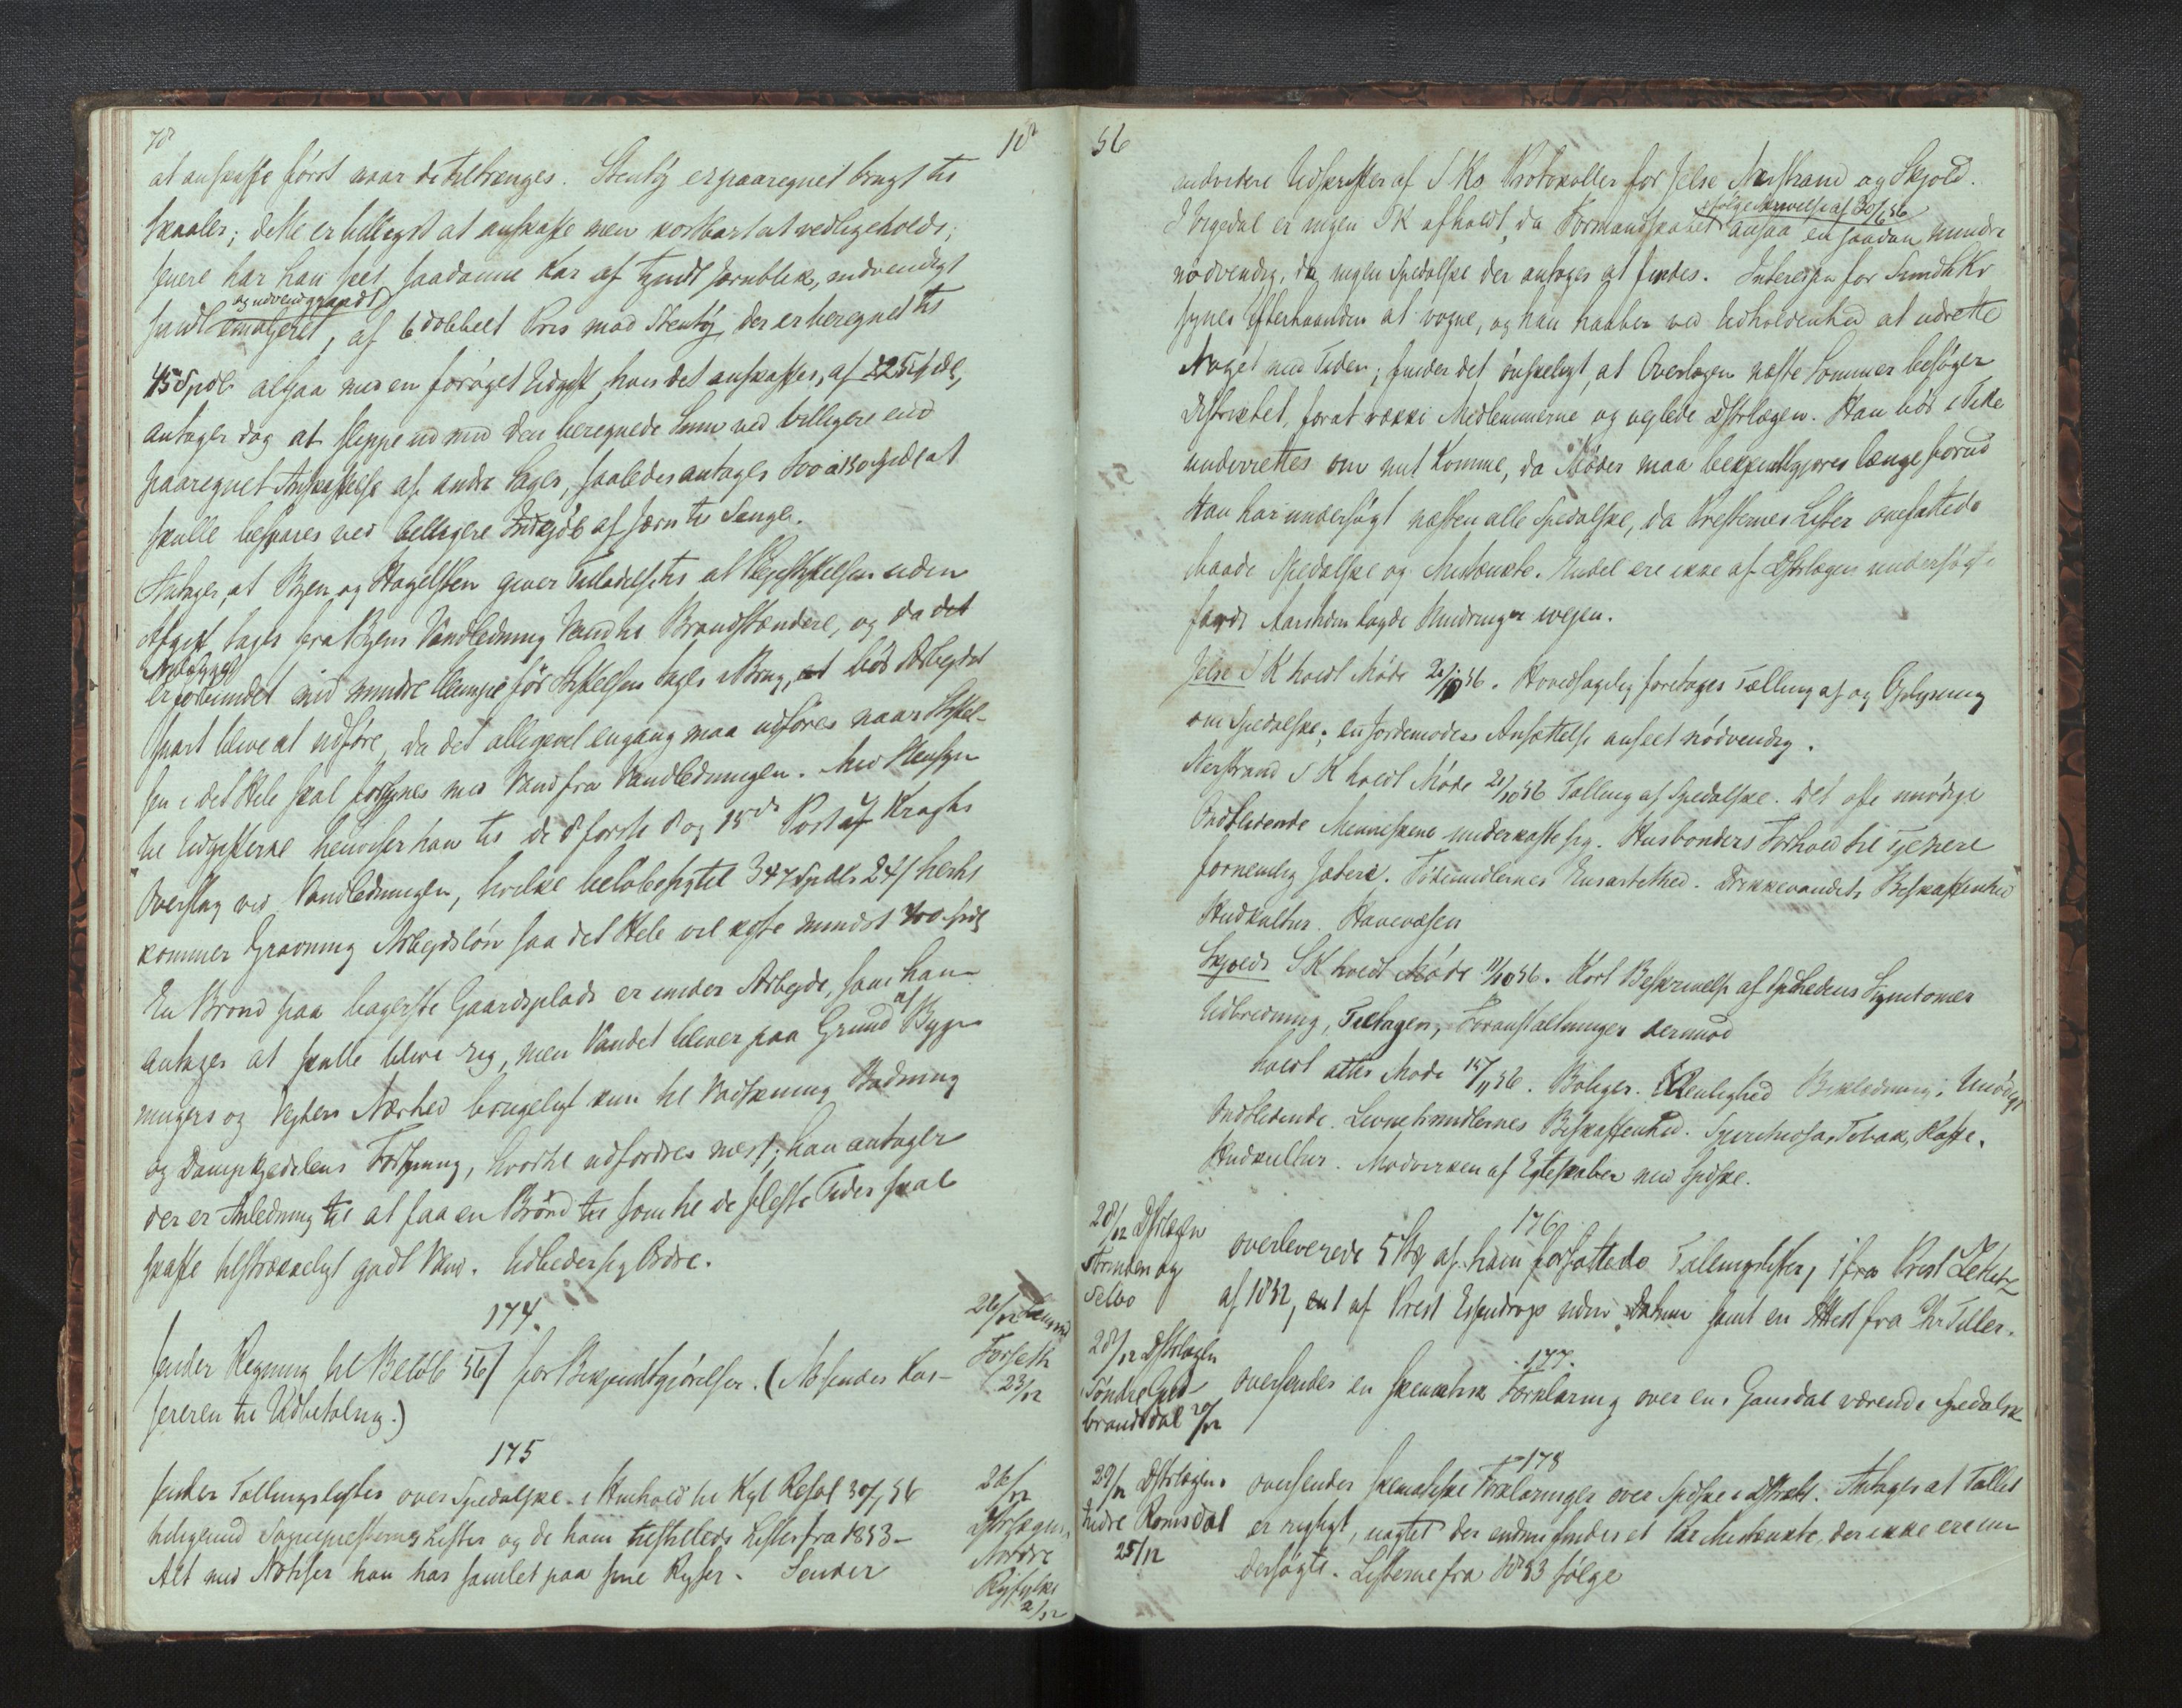 78
18
at anskaffe först naar de tiltrænges. Stentöj er paaregnet brugt til
Skaaler; dette er billigst at anskaffe men kostbart at vedligeholde;
senere har han seet saadanne Kar af tyndt Jernblik, indvendigt
og udvendigt
hvidt emaljeret, af 6 dobbelt Pris mod Stentöj, der er beregnet til
45 Spdlr altsaa med en foröget Udgift, hvis det anskaffes, af 225 Spdl,
antager dog at slippe ud med den beregnede Sum ved billigere end
paaregnet Anskaffelse af andre Sager, saaledes antages 100 à 150 Spdl at
skulle bespares ved billigere Indkjöb af Jern til Senge.
Antager, at Byen og Stagelsten giver Tilladelse til at Plejestiftelsen uden
Afgift tages fra Byens Vandledning Vand til Brandstændere, og da det
Anlægget
er forbundet med mindre Ulempe för Stiftelsen tages i Brug, bör Arbejdet
snart blive at udföre, da det alligevel engang maa udföres naar Stiftel-
sen i det Hele skal forsynes med Vand fra Vandledningen. Med Hensyn
til Udgifterne henviser han til de 8 förste og 15de Post af Kraghs
Overslag ved Vandledningen, hvilke belöbe sig til 347 Spdlr 24 ſ hertil
kommer Gravning Arbejdslön saa det Hele vil koste mindst 400 Spdl
En Brönd paa bagerste Gaardsplads er under Arbejde, som han
antager at skulle blive rig, men Vandet bliver paa Grund af Byg-
ningers og Vejens Nærhed brugeligt kun til Vadskning Badning
og Dampkjedelens Forsyning, hvortil udfordres mest; han antager
der er Anledning til at faa en Brönd til som til de fleste Tider skal
skaffe tilstrækkeligt godt Vand. Udbeder sig Ordre.
174.
26/12
Forseth
23/12
sender Regning til Belöb 56 ſ for Bekjendtgjörelser. (Afsendes Kas-
sereren til Udbetaling.)
175
26/12
Dstrlægen
Nordre
Ryfylke
2/12
sender Tællingslister over Spedalske i Henhold til Kgl Resol 30/7 56
tilligemed Sognepresternes Lister og de ham tilstillede Lister fra 1853 –
Alt med Notiser han har samlet paa sine Rejser. Sender
56
endvidere Udskrifter af SKs Protokoller for Jelse Nerstrand og Skjold.
ifölge Skrivelse af 30/6 56
I Vigedal er ingen SK afholdt, da Formandskabet ansaa en saadan mindre
nödvendig, da ingen Spedalske der antages at findes. Interessen for SundhKr
synes efterhaanden at vogne, og han haaber ved Udholdenhed at udrette
Noget med Tiden; finder det önskeligt, at Overlægen næste Sommer besöger
Distriktet, for at vække Medlemmerne og vejlede Dstrlægen. Han bör i Tide
underrettes om mit Komme, da Möder maa bekjendtgjöres længe forud
Han har undersögt næsten alle Spedalske, da Presternes Lister omfattede
baade Spedalske og Mistænkte. Endel ere ikke af Dstrlægen undersögt
fordi Aarstiden lagde Hindringer ivejen.
Jelse SK holdt Möde 24/10 56. Hovedsagelig foretages Tælling af og Oplysning
om Spedalske; en Jordemoders Ansættelse anseet nödvendig.
Nerstrand SK holdt Möde 21/10 56 Tælling af Spedalske. Det ofte unödige
Ondtlidende Menneskene underkaste sig. Husbonders Forhold til Tjenere
fornemlig Jætere. Födemidlernes Ensartethed. Drikkevandets Beskaffenhed
Hudkultur. Havevæsen
Skjolds SK holdt Möde 11/10 56. Kort Beskrivelse af Spdhedens Symtomer
Udbredning, Tiltagen, Foranstaltninger dermod
holdt atter Möde 15/11 56. Boliger. Renlighed Beklædning; Unödigt
Ondtlidende. Levnetsmidlernes Beskaffenhed. Spirituosa, Tobak, Kaffe.
Hudkultur. Modvirken af Egteskaber med Spdske.
176
28/12 Dstrlægen
Trondens og
Selbo
overleverede 5 Stk af ham forfattede Tællingslister, 1 fra Prest
af 1852, en 1 af Prest Essendrop uden Datum samt en Attest fra Tiller.
177.
28/12 Dstrlægen
Söndre Gud-
brandsdal 20/12
oversender en skematisk Forklaring over en i Gausdal værende Spedalsk
178
29/12 Dstrlægen
Indre Romsdal
25/12
oversender skematiske Forklaringer over Spdske i Dstrktet. Antager at Tallet
er rigtigt, uagtet der endnu findes et Par Mistænkte, der ikke ere un-
dersögte. Listerne fra 1853 fölge